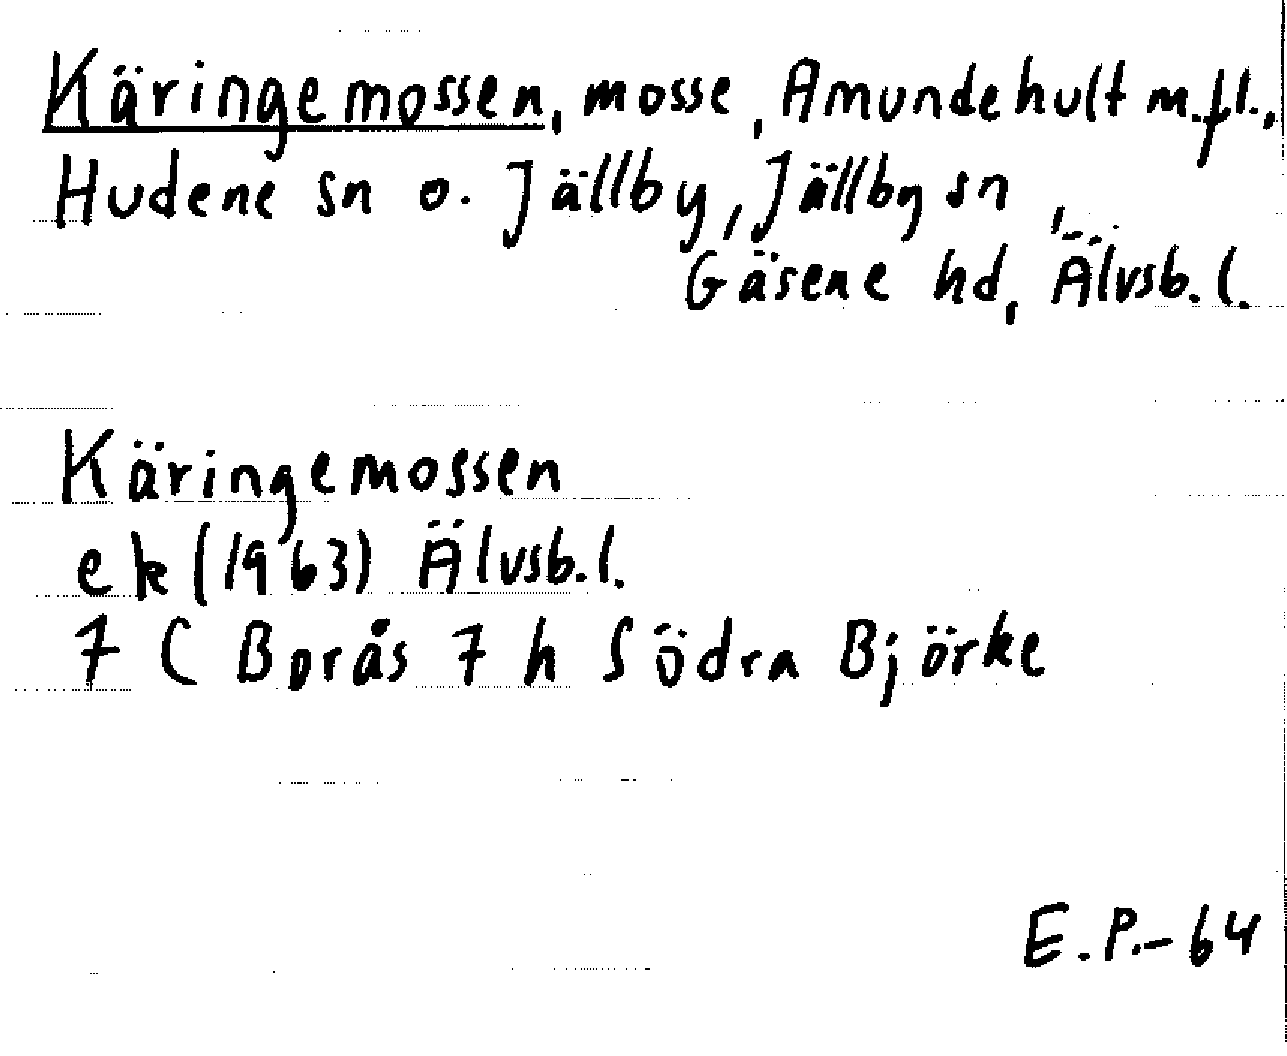 Käringemossen, mosse, Amundehult m.fl.,
Hudene sn o. Jällby, Jällby sn,
Gäsene hd, Älvsb. l.
Käringemossen
ek (1963) Älvsb. l.
7 C Borås 7 h Södra Björke
E.P.-64